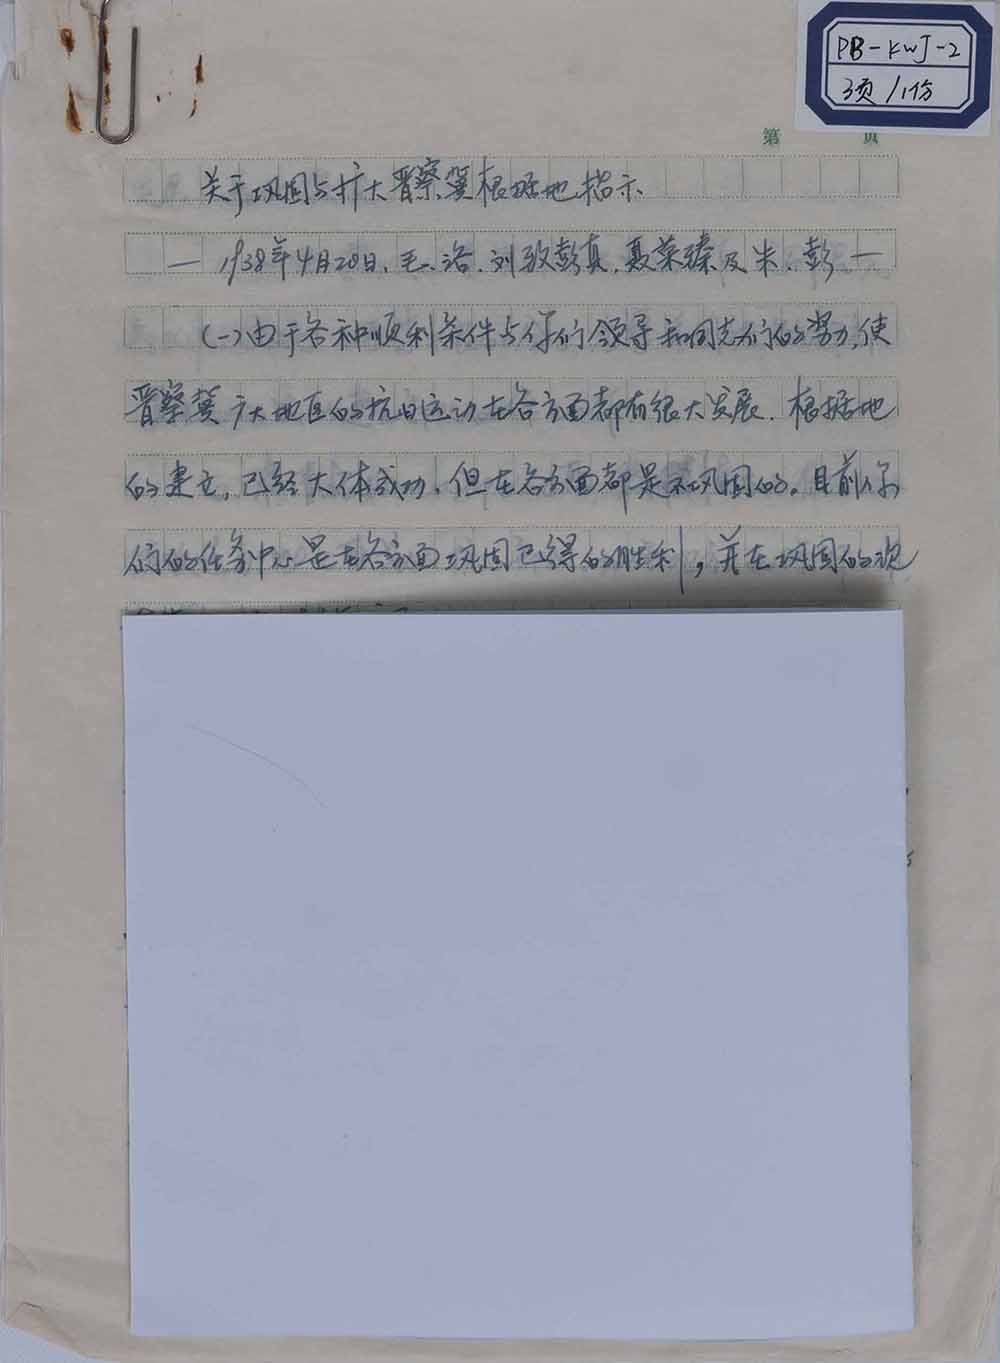 PB-KWJ-2
3页/1份
第 页
关于巩固与扩大晋察冀根据地指示
— 1938年4月20日、毛、洛、刘致彭真、聂荣臻及朱、彭 —
(一)由于各种顺利条件与你们领导和同志们的努力,使
晋察冀广大地区的抗日运动在各方面都有很大发展.根据地
的建立,已经大体成功,但在各方面都是不巩固的。目前你
们的任务中心是在各方面巩固已得的胜利,并在巩固的观